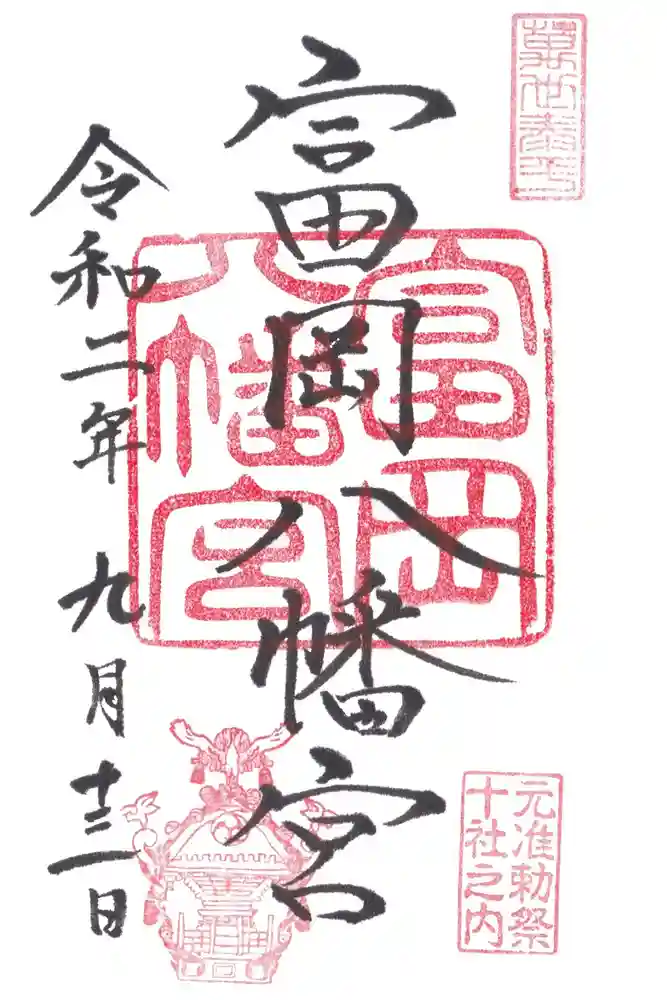 萬世泰平
元准勅祭
十社之内
富岡八幡宮
富岡
八幡宮
令和二年 九月十二日